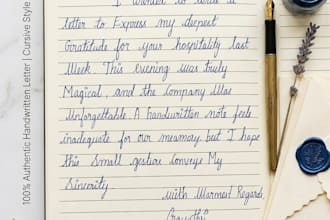 I wanted to write a
letter to Express my deepest
Gratitude for your hospitality last
Week. This evening was truly
Magical, and the Company Was
Unforgettable. A handwritten note feels
inadequate for our meamay but I hope
this Small gesture Conveys My
Sincerity.
with Warmest Regards,
100% Authentic Handwritten Letter | Cursive Style